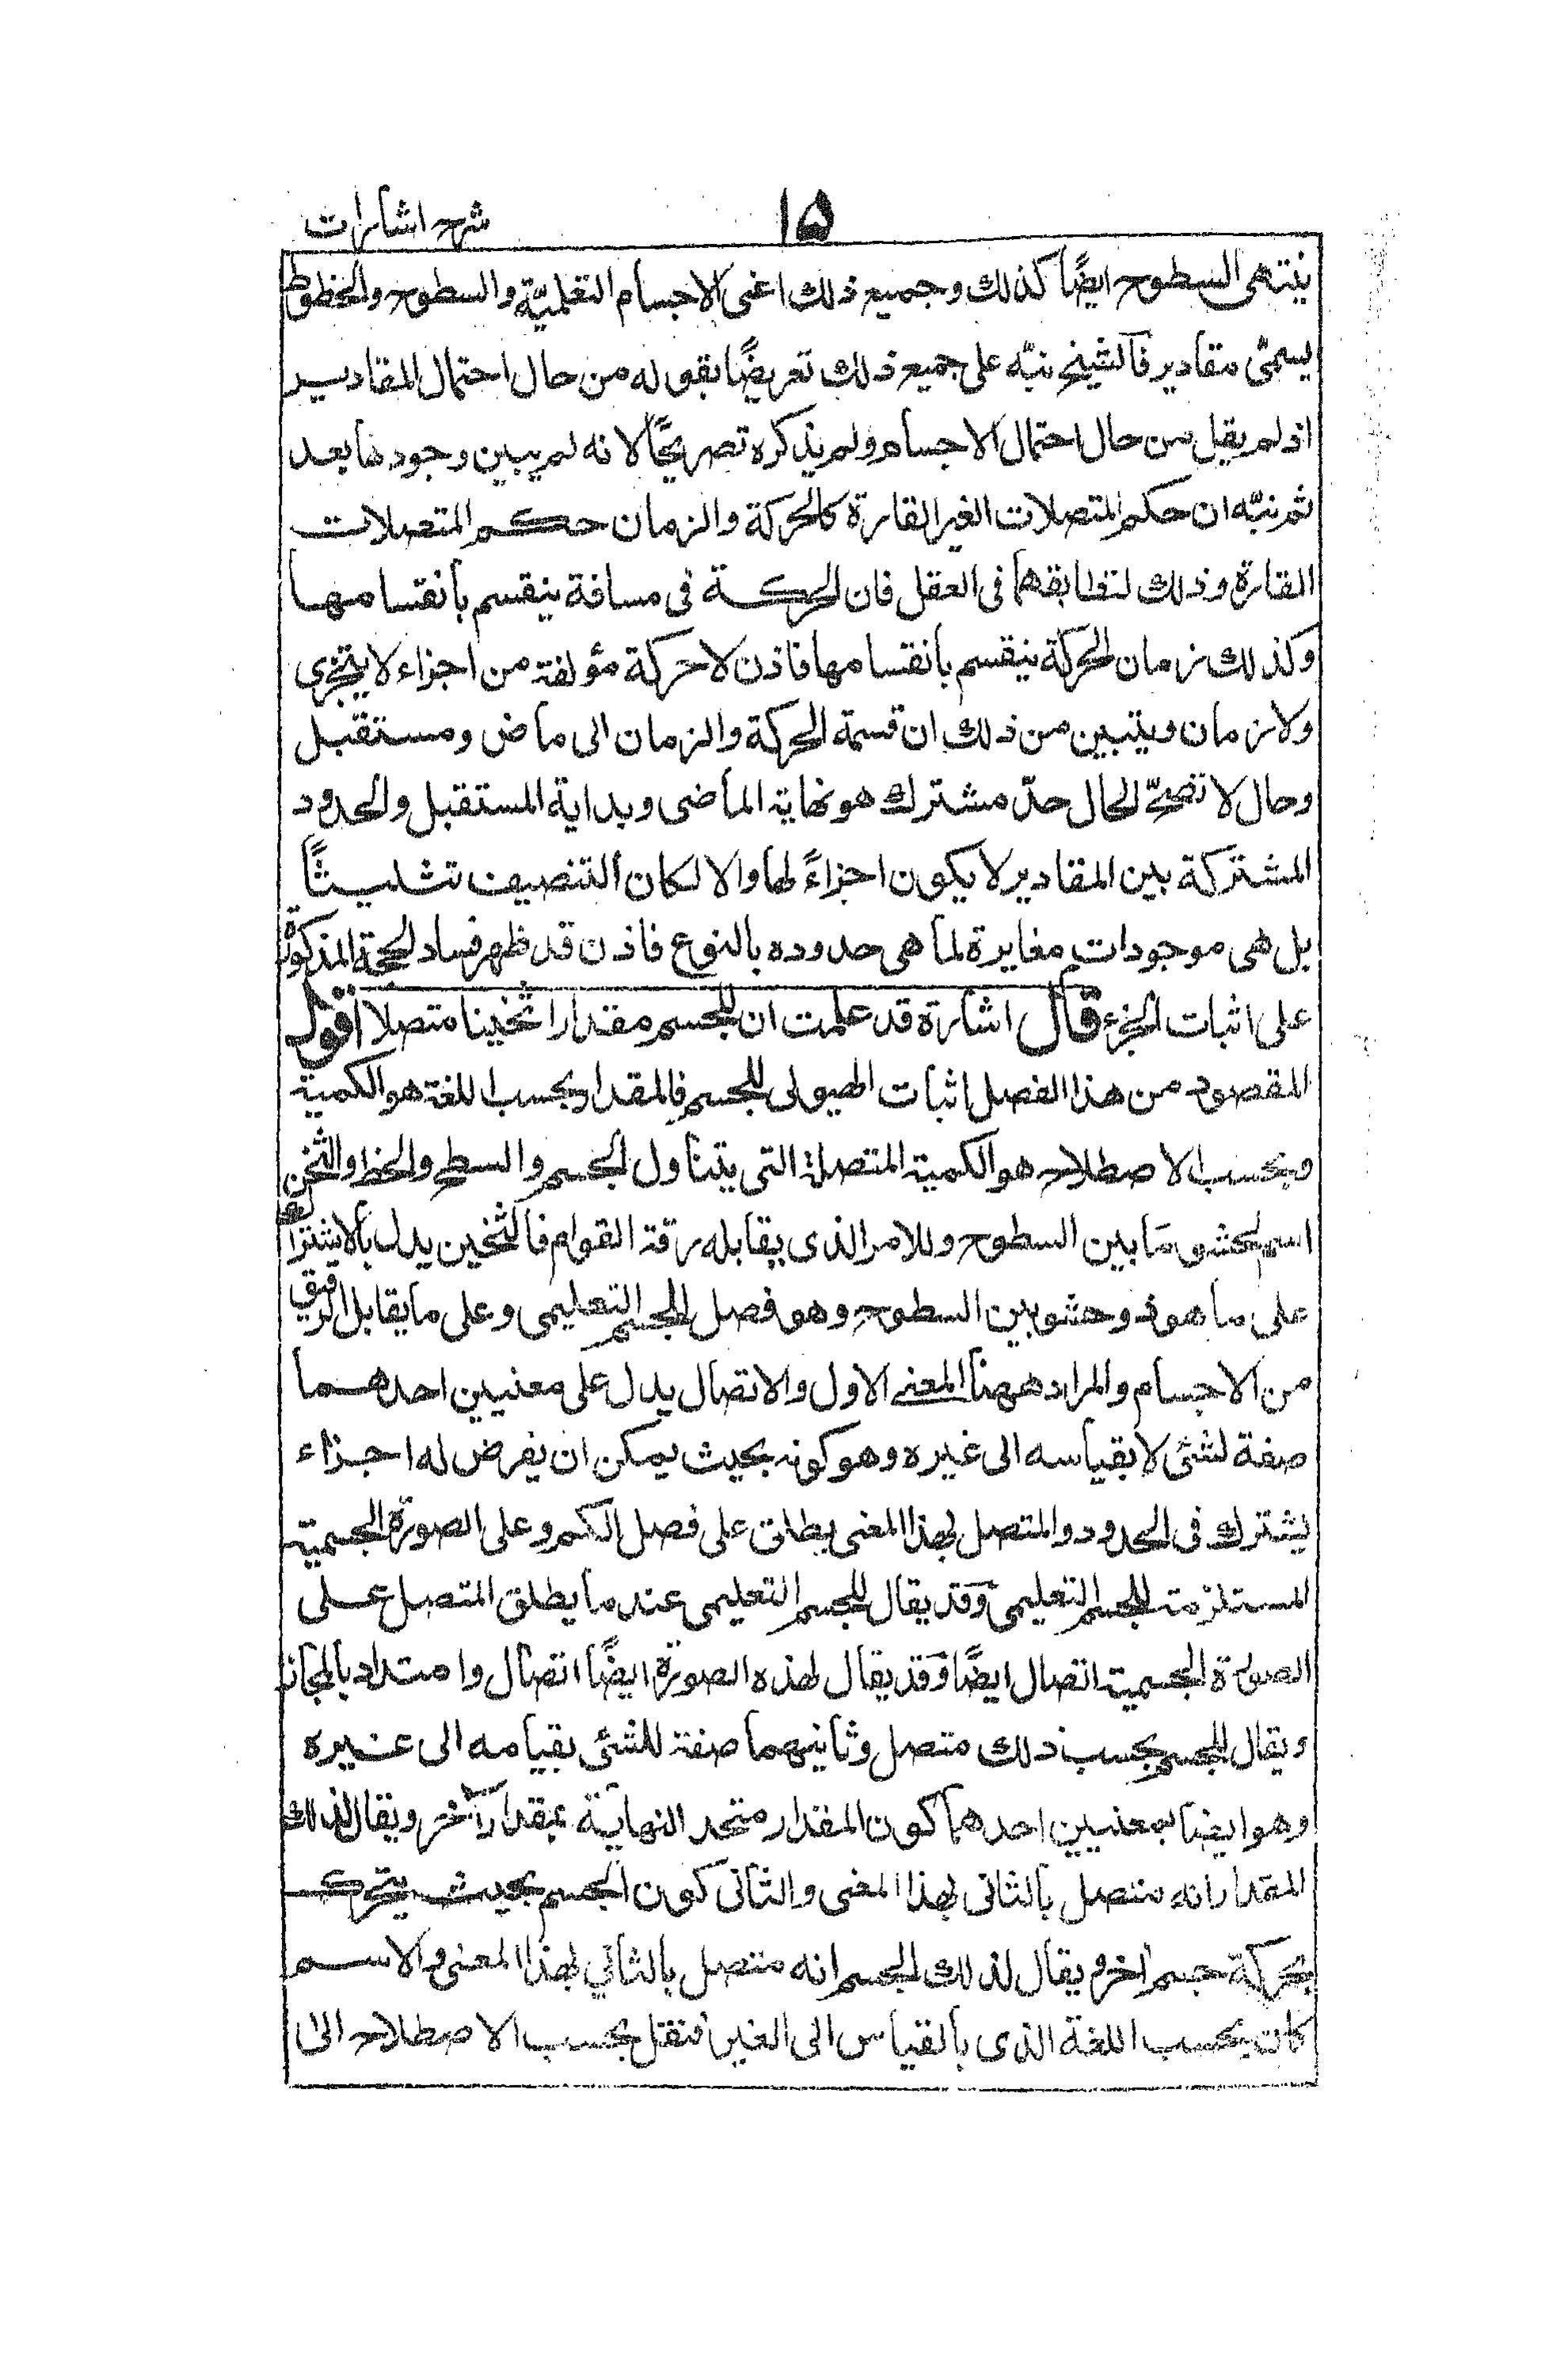 ١٥
شرح اشارات
ينتهى السطوح ايضًا كذلك وجميع ذلك اعنى الاجسام التعلميّة والسطوح والخطوط
يسمى مقادير فالشيخ نبّه على جميع ذلك تعريضًا بقوله من حال احتمال المقادير
اذ لم يقل من حال احتمال الاجسام ولم يذكره تصريحًا لانه لم يبين وجودها بعد
ثم نبّه ان حكم المتصلات الغير القارة كالحركة والزمان حكم المتصلات
القارة وذلك لتطابقهما فى العقل فان الحركة فى مسافة ينقسم بانقسامها
وكذلك زمان الحركة ينقسم بانقسامها فاذن لا حركة مؤلفة من اجزاء لا يتجزى
ولا زمان ويتبين من ذلك ان قسمة الحركة والزمان الى ماض ومستقبل
وحال لا تصحّ لحال حدّ مشترك هو نهاية الماضى وبداية المستقبل والحدود
المشتركة بين المقادير لا يكون اجزاءً لها والا لكان التنصيف تثليثًا
بل هى موجودات مغايرة لما هى حدوده بالنوع فاذن قد ظهر فساد الحجة المذكورة
على اثبات الجزء قال اشارة قد علمت ان للجسم مقدارا ثخينا متصلا اقول
المقصود من هذا الفصل اثبات الهيولى للجسم فالمقدار بحسب اللغة هو الكمية
وبحسب الاصطلاح هو الكمية المتصلة التى يتناول الجسم والسطح والخط والثخن
اسم لحشو ما بين السطوح وللامر الذى يقابله رقة القوام فالثخين يدل بالاشتراك
على ما هو ذو حشو بين السطوح وهو فصل للجسم التعليمى وعلى ما يقابل الرقيق
من الاجسام والمراد ههنا المعنى الاول والاتصال يدل على معنيين احدهما
صفة لشئى لا بقياسه الى غيره وهو كونه بحيث يمكن ان يفرض له اجزاء
يشترك فى الحدود والمتصل بهذا المعنى يطلق على فصل الكم وعلى الصورة الجسمية
المستلزمة للجسم التعليمى وقد يقال للجسم التعليمى عند ما يطلق المتصل على
الصورة الجسمية اتصال ايضًا وقد يقال لهذه الصورة ايضًا اتصال وامتداد بالمجاز
ويقال للجسم بحسب ذلك متصل وثانيهما صفة للشئى بقيامه الى غيره
وهو ايضا بمعنيين احدهما كون المقدار متحد النهاية بمقدار آخر ويقال لذلك
المقدار انه متصل بالثانى بهذا المعنى والثانى كون الجسم بحيث يتحرك
بحركة جسم اخر ويقال لذلك الجسم انه متصل بالثاني بهذا المعنى والاسم
كان بحسب اللغة الذى بالقياس الى الغير فنقل بحسب الاصطلاح الى